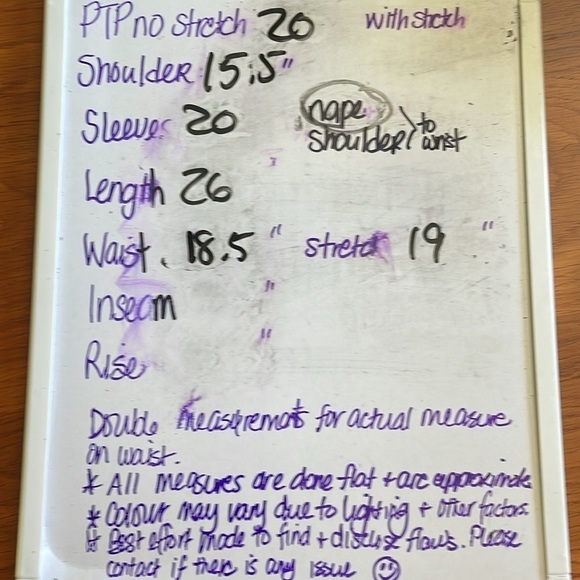 PTP no stretch 20 with stretch
Shoulder 15.5"
Sleeves 20 nape
shoulder > to wrist
Length 26 "
Waist. 18.5 " stretch 19 "
Inseam "
Rise "
Double measurements for actual measure
on waist.
* All measures are done flat + are approximate
* Colour may vary due to lighting + other factors.
* Best effort made to find + disclose flaws. Please
contact if there is any issue ☺